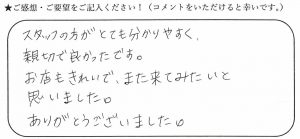 ★ご感想・ご要望をご記入ください！（コメントをいただけると幸いです。）
スタッフの方がとても分かりやすく、
親切で良かったです。
お店もきれいで、また来てみたいと
思いました。
ありがとうございました。